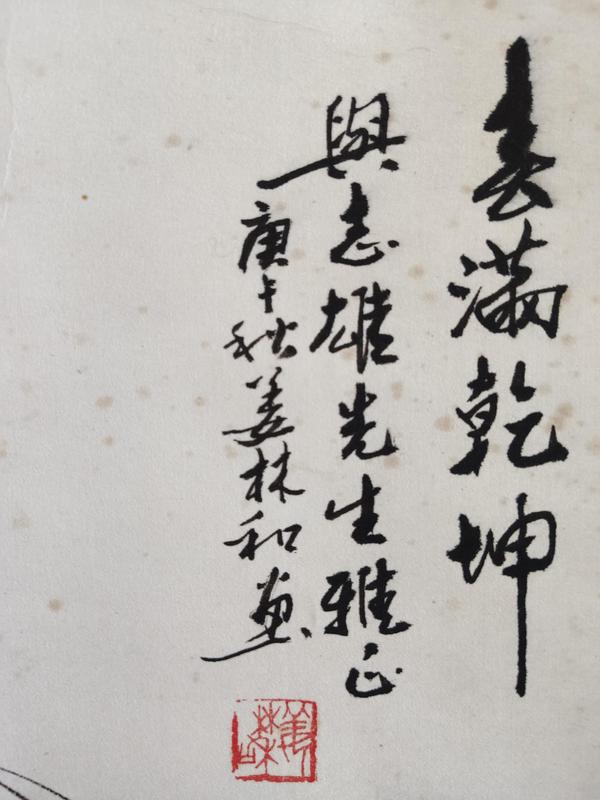 春满乾坤
與志雄先生雅正
庚午秋姜林和画